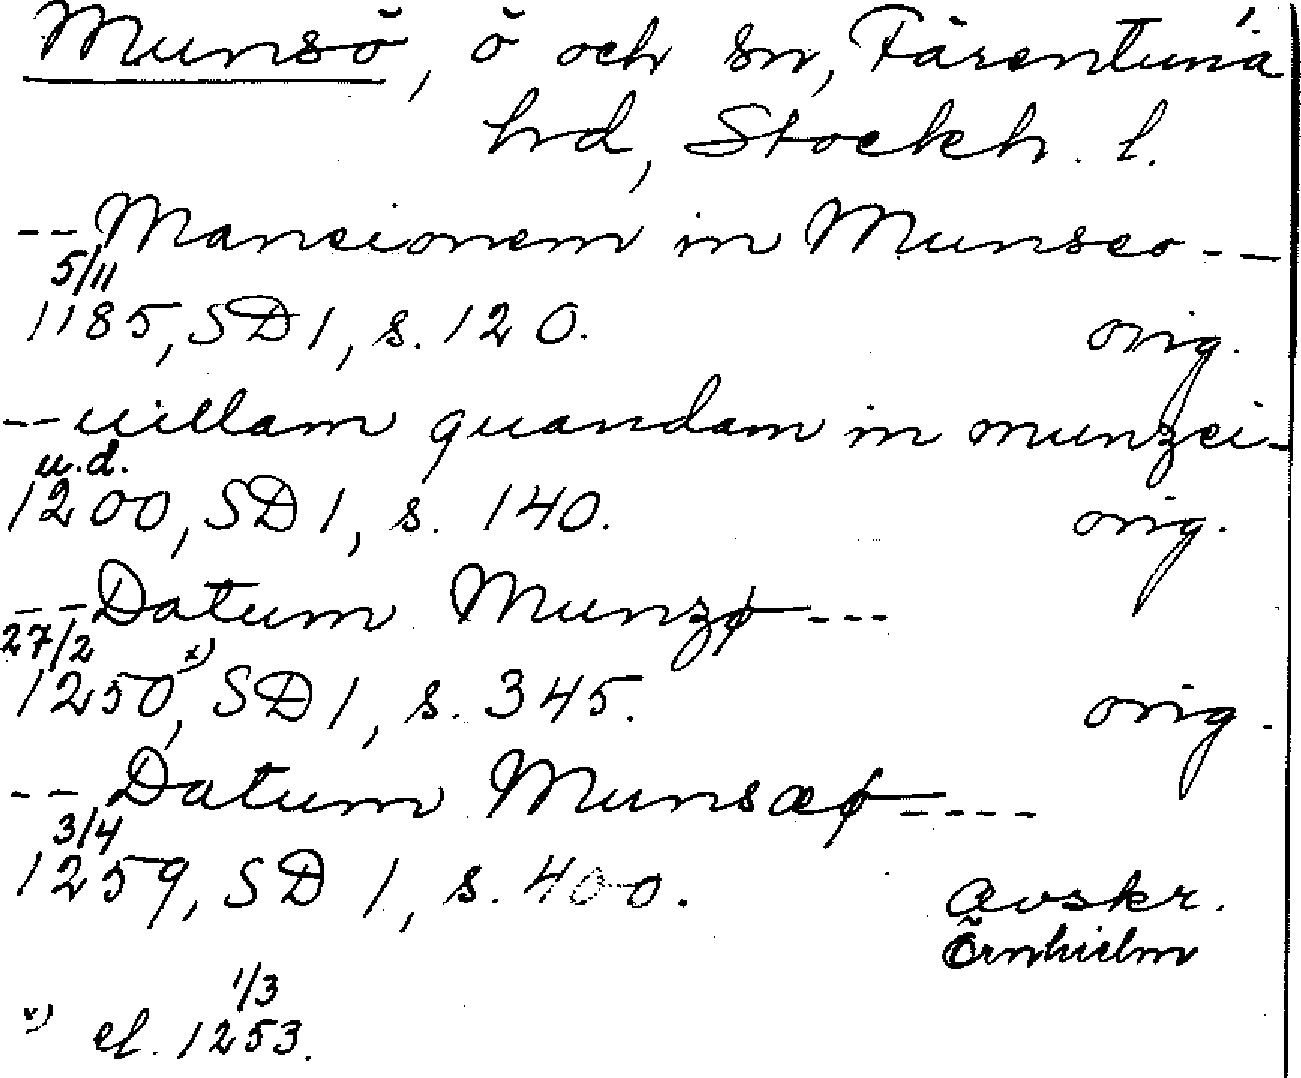 Munsö, ö och sn, Färentuna
hrd, Stockh. l.
-- Mansionem in Munseo --
5/11
1185, SD 1, s. 120. orig.
-- uillam quandam in munzei-
u.d.
1200, SD 1, s. 140. orig.
-- Datum Munzø ---
27/2
1250 x), SD 1, s. 345. orig.
-- Datum Munsæø ----
3/4
1259, SD 1, s. 400. avskr.
Örnhielm
1/3
x) el. 1253.